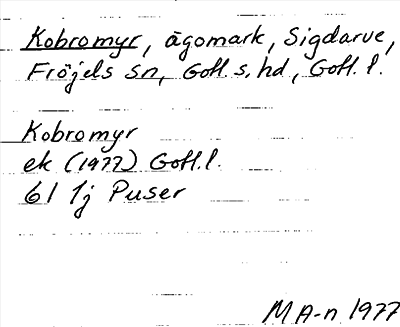 Kobromyr, ägomark, Sigdarve,
Fröjels sn, Gotl. s. hd, Gotl. l.
Kobromyr
ek (1977) Gotl. l.
6I 1j Puser
MA-n 1977